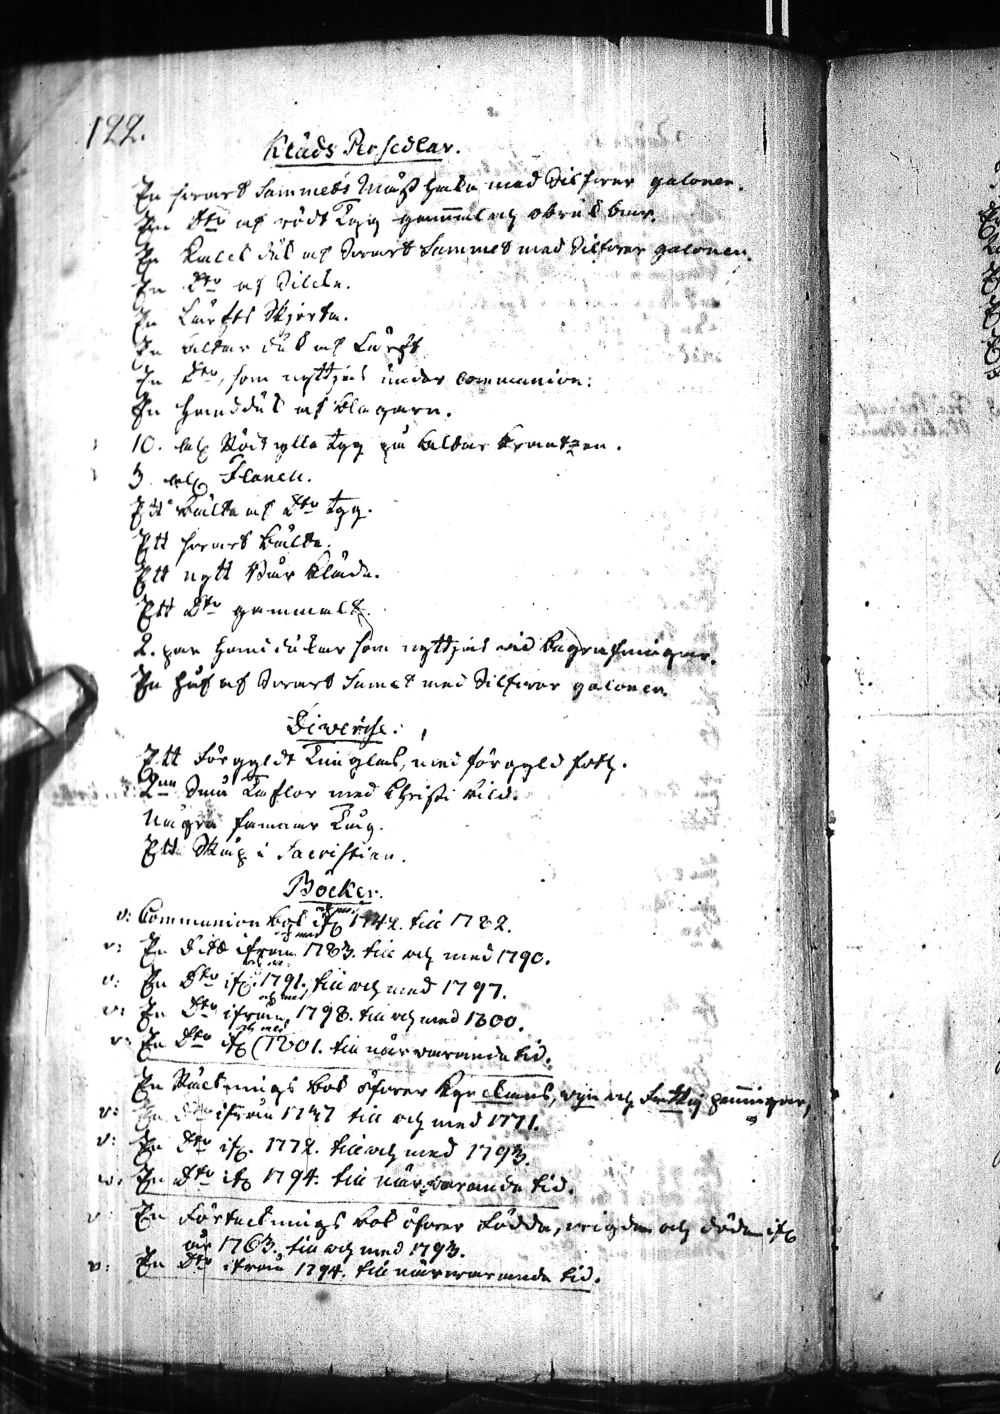 122.
Kläds Persedlar.
En svart Sammets Mässhake med Silfver galoner.
En Dto af rödt Tyg gammal och obrukbar.
En Kalck duk af Svart Sammet med Silfver galoner.
En Dto af Silcke.
En Lärfts Skjorta.
En altar duk af Lärft
En Dto, som nyttjas under Communion.
En Handduk af blagarn.
10. aln Rödt ylle tyg på Altar Krantzen.
3. aln Flanell.
Ett Bälte af Dto tyg.
Ett svart Bälte.
Ett nytt Bår Kläde.
Ett Dto gammalt.
2. par Handdukar som nyttjas vid Begrafningar.
En Huf af Svart Samet med Silfver galoner
Diverse:
Ett Förgyldt Timglas, med förgyld fot.
2nne Små Taflor med Christi bild.
Några famnar Tåg.
Ett Skåp i Sacristian.
Böcker.
v: Communion bok ifr och med 1742. till 1782.
v: En Dito ifrån och med 1783. till och med 1790.
v: En Dto ifr. och m. 1791. till och med 1797.
v: En Dto ifrån och med 1798. till och med 1800.
v: En Dto ifr och med 1801. till närvarande tid.
En Räcknings bok öfver Kyrckians, vijn och Fattig penningar,
v: En Dto ifrån 1747 till och med 1771.
v: En Dto ifr. 1772. till och med 1793.
v. En Dto ifr 1794. till närvarande tid.
v: En Förtecknings bok öfver Födda, vigda och döda ifr
år 1763. till och med 1793.
v: En Dto ifrån 1794. till närvarande tid.